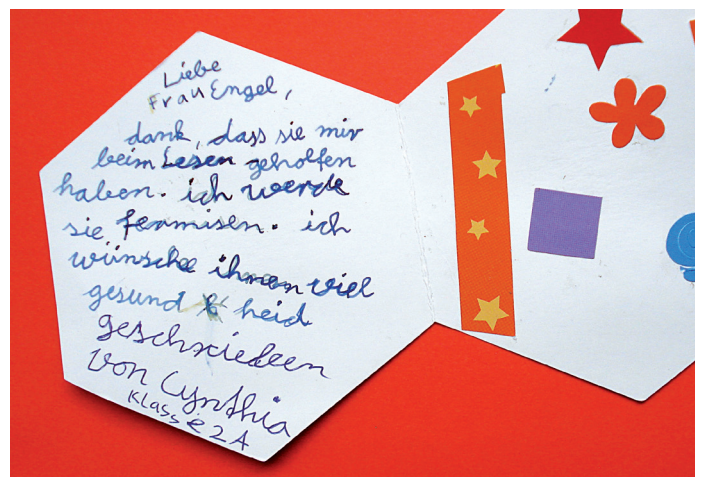 Liebe
Frau Engel,
dank, dass sie mir
beim Lesen geholfen
haben. ich werde
sie fermisen. ich
wünsche ihnen viel
gesund heid
geschrieben
von Cynthia
Klasse 2A